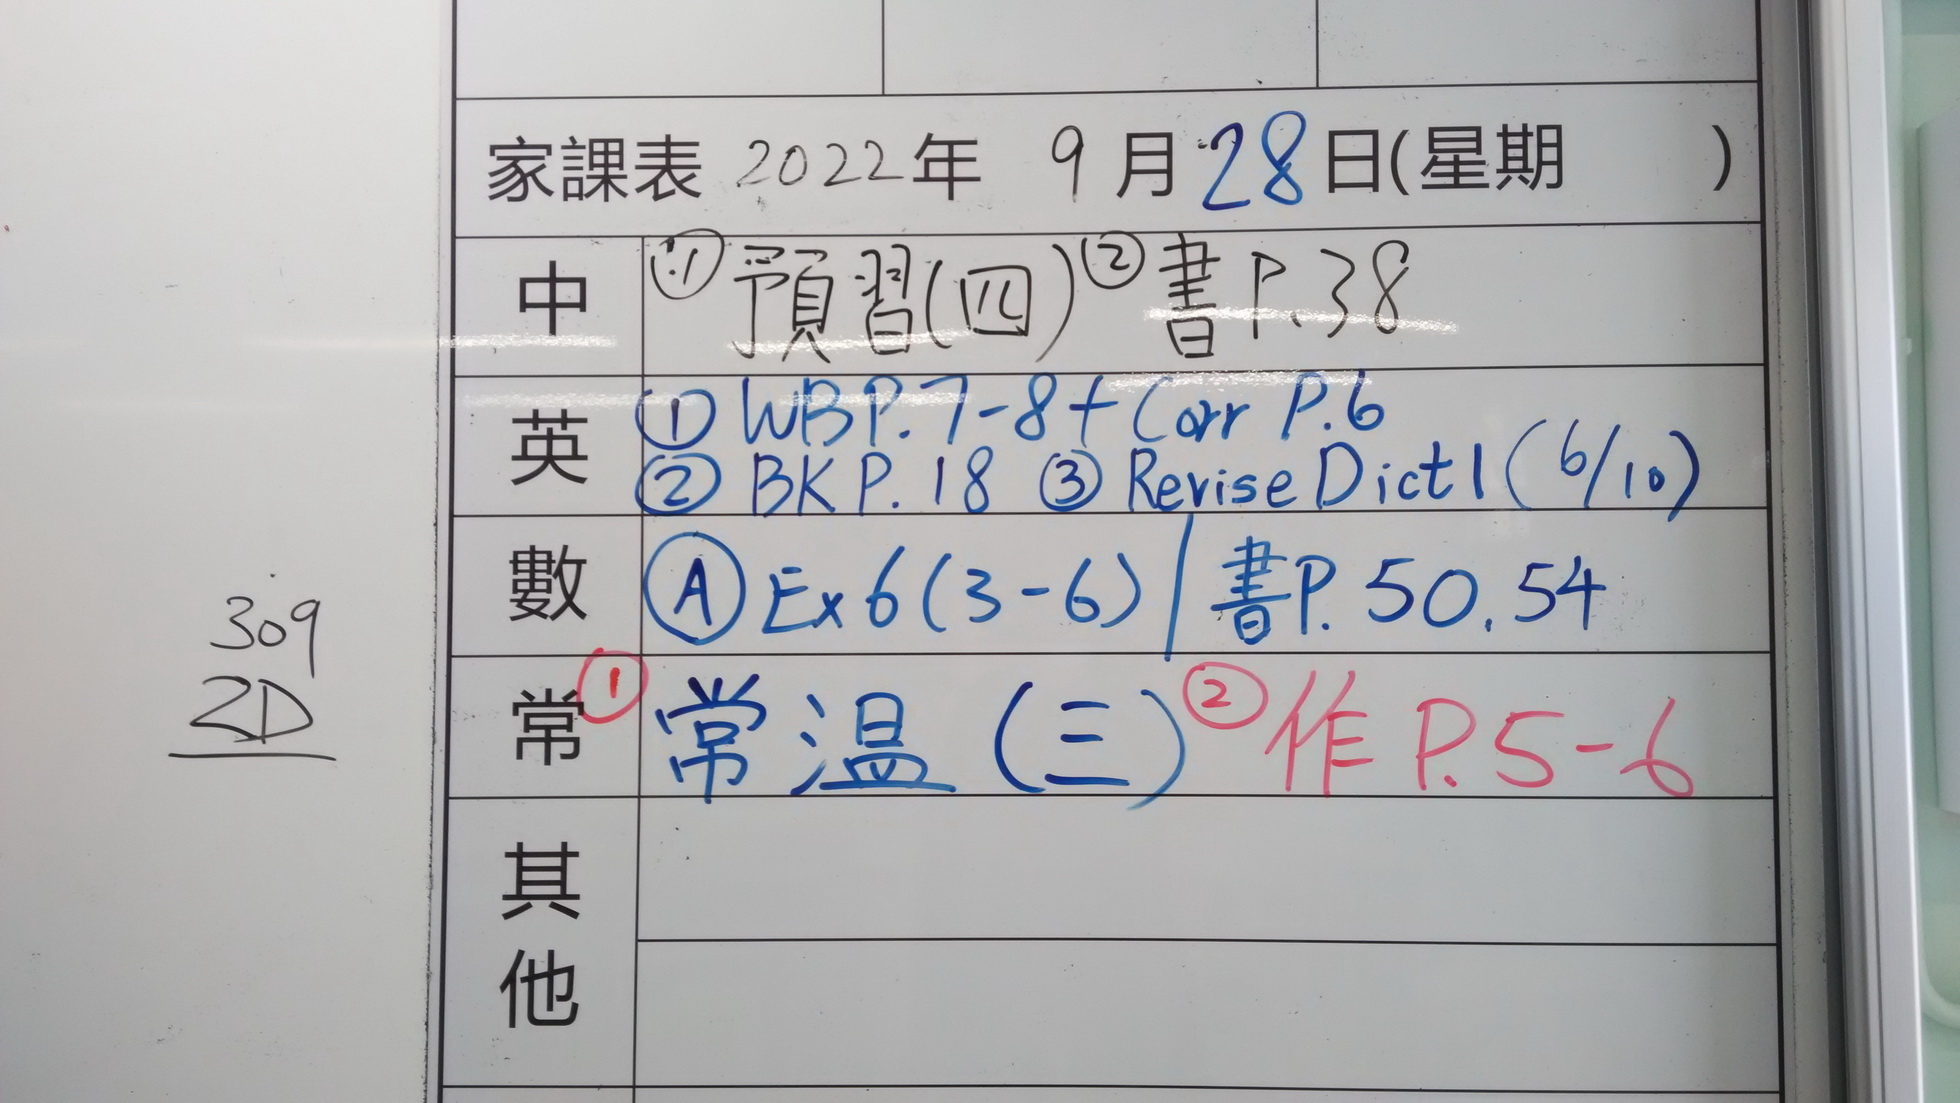 家課表 2022年 9月28日(星期 )
中 ①預習(四) ②書P.38
英 ① WB P.7-8 + Corr P.6
② BK P.18 ③ Revise Dict 1 (6/10)
數 Ⓐ Ex 6 (3-6) / 書P. 50, 54
常 ① 常溫 (三) ② 作 P.5-6
其他
309
2D